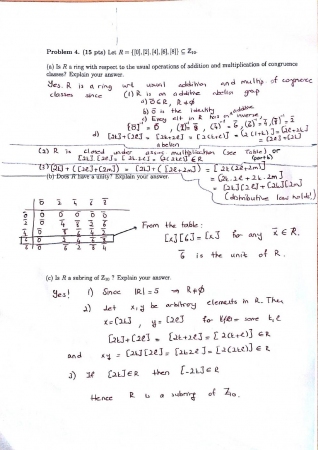 Problem 4. (15 pts) Let R = {[0], [2], [4], [6], [8]} ⊆ Z₁₀
(a) Is R a ring with respect to the usual operations of addition and multiplication of congruence
classes? Explain your answer.
Yes. R is a ring wrt usual addition and multip of congruence
classes since (1) R is an additive abelian group
a) 0̄ ∈ R, R ≠ ∅
b) 0̄ is the identity
c) Every elt in R has an additive inverse,
d) [2k]+[2l] = [2k+2l] =
abelian
(2) R is closed under multiplication (see Table) or
[2k].[2l] = ∈ R (part b)
(3) [2k] ( [2l]+[2m]) = [2k] ( [2l+2m]) = [2k(2l+2m)]
(b) Does R have a unity? Explain your answer.
= [2k.2l + 2k.2m]
= [2k][2l] + [2k][2m]
(distributive law holds!)
0̄ 2̄ 4̄ 6̄ 8̄
0̄ 0 0 0 0 0
2̄ 0 4 8 2 6
4̄ 0 8 6 4 2
6̄ 0 2 4 6 8
8̄ 0 6 2 8 4
From the table :
[x][6] = [x] for any x̄ ∈ R.
6̄ is the unit of R.
(c) Is R a subring of Z₁₀ ? Explain your answer.
Yes! 1) Since |R| = 5 → R ≠ ∅
2) Let x, y be arbitrary elements in R. Then
x = [2k], y = [2l] for some k, l
[2k]+[2l] = [2k+2l] = [2(k+l)] ∈ R
and xy = [2k][2l] = [2k2l] = [2(2kl)] ∈ R
3) If [2k] ∈ R then [-2k] ∈ R
Hence R is a subring of Z₁₀.